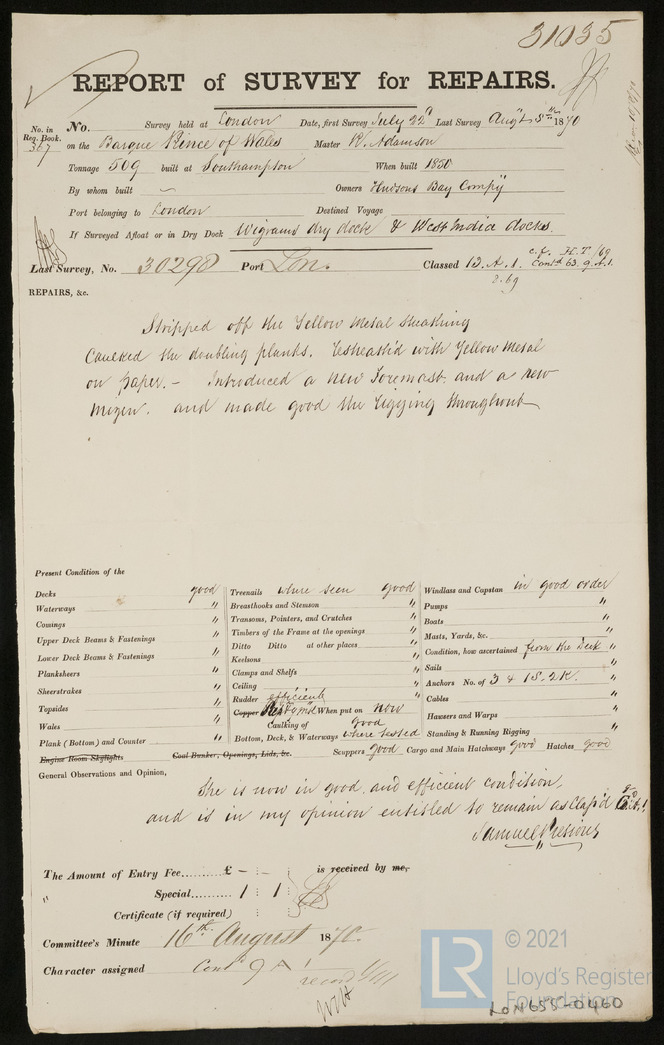 31035
REPORT of SURVEY for REPAIRS.
No. in Reg. Book. 367
No. Survey held at London Date, first Survey July 22d Last Survey Augt 3rd 1870
on the Barque Prince of Wales Master W. Adamson
Tonnage 509 built at Southampton When built 1850
By whom built — Owners Hudsons Bay Compy
Port belonging to London Destined Voyage
If Surveyed Afloat or in Dry Dock Wigrams dry dock & West India docks.
Last Survey, No. 30298 Port Lon. Classed 13.A.1. c.f. H.T./69
Contd 63. 9.A.1.
2.69
REPAIRS, &c.
Stripped off the Yellow Metal sheathing
Caulked the doubling planks. Resheath'd with Yellow Metal
on paper. — Introduced a new Foremast. and a new
Mizen. and made good the rigging throughout
Present Condition of the
Decks good
Waterways "
Comings "
Upper Deck Beams & Fastenings "
Lower Deck Beams & Fastenings "
Planksheers "
Sheerstrakes "
Topsides "
Wales "
Plank (Bottom) and Counter "
Engine Room Skylights Coal Bunker, Openings, Lids, &c.
Treenails where seen good
Breasthooks and Stemson "
Transoms, Pointers, and Crutches "
Timbers of the Frame at the openings "
Ditto Ditto at other places "
Keelsons "
Clamps and Shelfs "
Ceiling "
Rudder efficient
Copper When put on now
Caulking of good
Bottom, Deck, & Waterways where tested
Scuppers good Cargo and Main Hatchways good Hatches good
Windlass and Capstan in good order
Pumps "
Boats "
Masts, Yards, &c. "
Condition, how ascertained from the Deck
Sails "
Anchors No. of 3 & 1S. 2K. "
Cables "
Hawsers and Warps "
Standing & Running Rigging "
General Observations and Opinion,
She is now in good and efficient condition,
and is in my opinion entitled to remain as Class'd
Samuel Pretious
The Amount of Entry Fee £ - : - : is received by me,
" Special 1 : 1 :
Certificate (if required) :
Committee's Minute 16th August 1870.
Character assigned Contd 9 A 1
© 2021
LR
Lloyd's Register
Foundation
LON655-0460